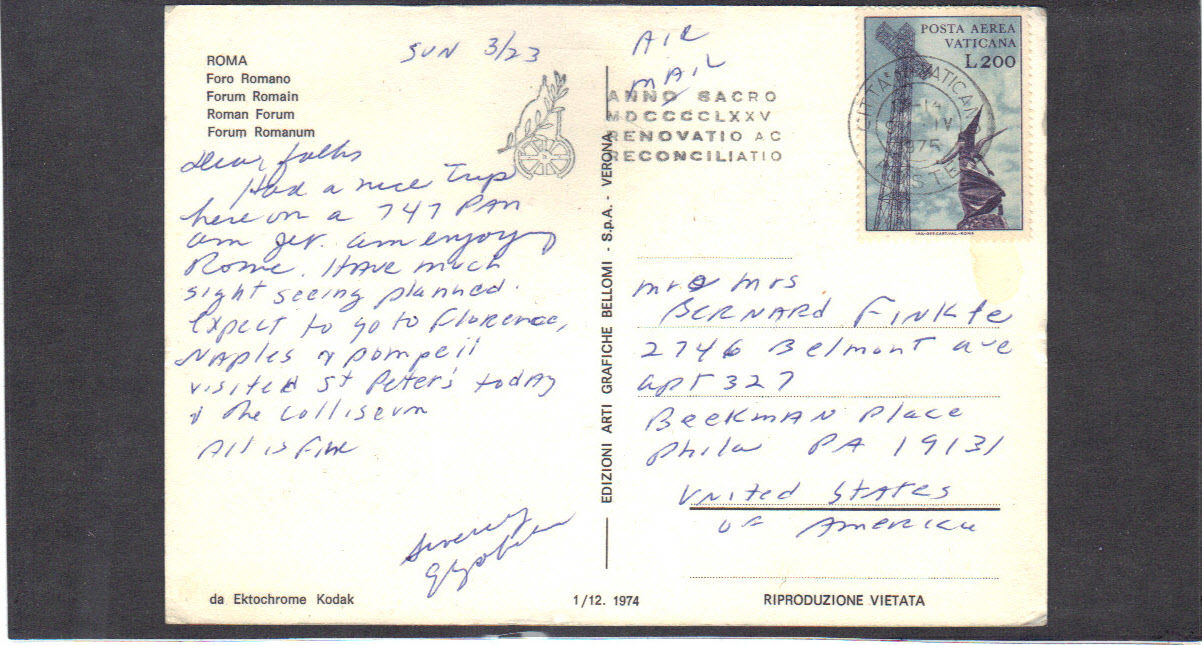 ROMA
Foro Romano
Forum Romain
Roman Forum
Forum Romanum
SUN 3/23
AIR
MAIL
Dear folks
Had a nice Trip
here on a 747 PAN
am jet. am enjoying
Rome. Have much
sight seeing planned.
expect to go to Florence,
NAples & pompeii
visited St Peter's today
& The Colliseum
All is Fine
Sincerely
da Ektochrome Kodak
1/12. 1974
EDIZIONI ARTI GRAFICHE BELLOMI - S.p.A. - VERONA
ANNO SACRO
MDCCCCLXXV
RENOVATIO AC
RECONCILIATIO
CITTA VATICANO
1975
POSTE
POSTA AEREA
VATICANA
L.200
mr & mrs
BERNARd FINKle
2746 Belmont ave
apt 327
BeekmAN Place
Phila PA 19131
United States
of America
RIPRODUZIONE VIETATA